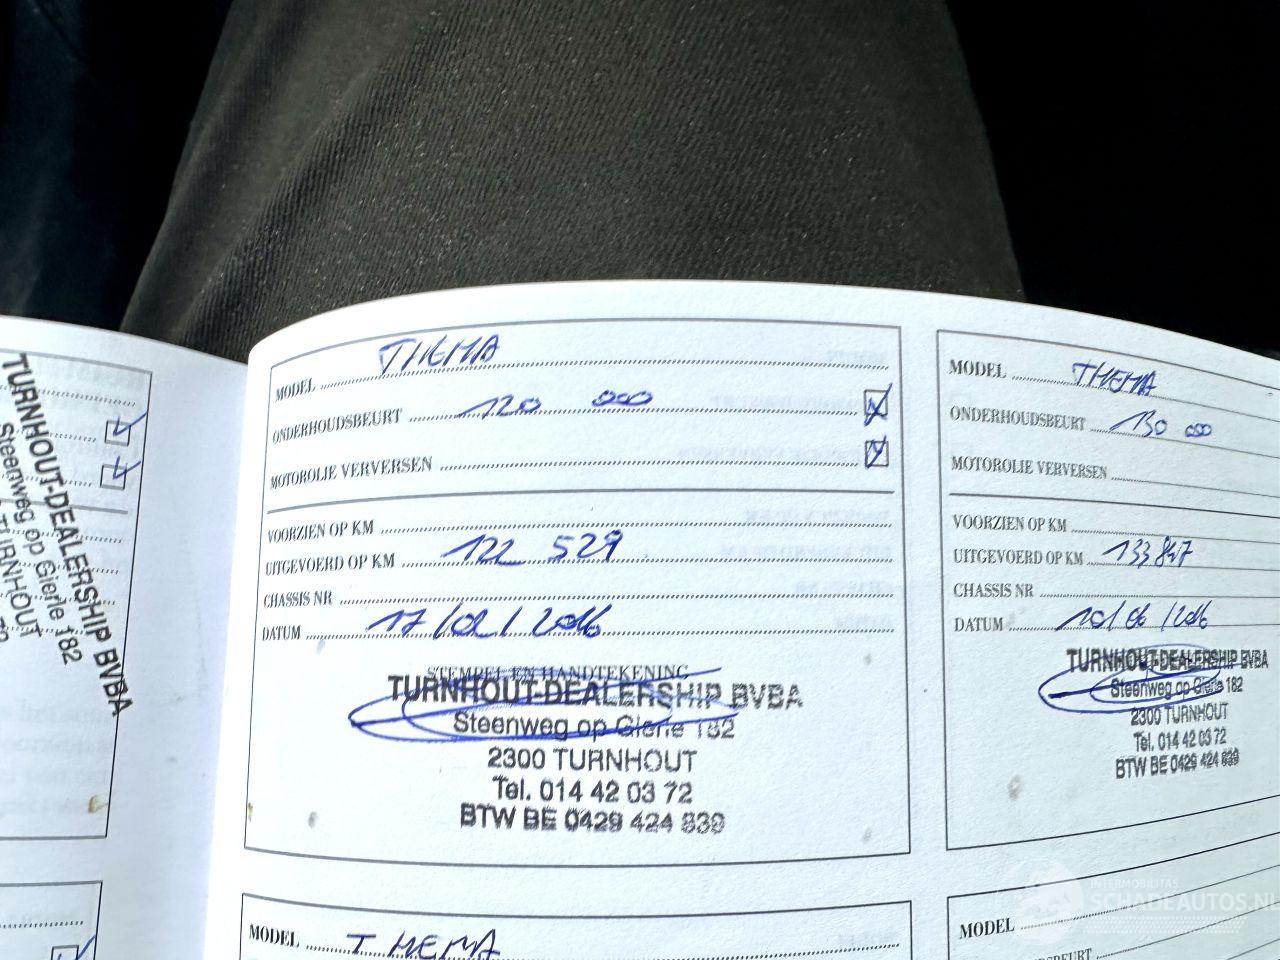 TURNHOUT-DEALERSHIP BVBA
Steenweg op Gierle 182
TURNHOUT
72
MODEL THEMA
ONDERHOUDSBEURT 120 000
MOTOROLIE VERVERSEN
VOORZIEN OP KM
UITGEVOERD OP KM 122 529
CHASSIS NR
DATUM 17/02/2016
STEMPEL EN HANDTEKENING
TURNHOUT-DEALERSHIP BVBA
Steenweg op Gierle 182
2300 TURNHOUT
Tel. 014 42 03 72
BTW BE 0429 424 839
MODEL THEMA
MODEL THEMA
ONDERHOUDSBEURT 130 000
MOTOROLIE VERVERSEN
VOORZIEN OP KM
UITGEVOERD OP KM 133 847
CHASSIS NR
DATUM 10/06/2016
TURNHOUT-DEALERSHIP BVBA
Steenweg op Gierle 182
2300 TURNHOUT
Tel. 014 42 03 72
BTW BE 0429 424 839
MODEL
INTERMOBILITAS
SCHADEAUTOS.NL